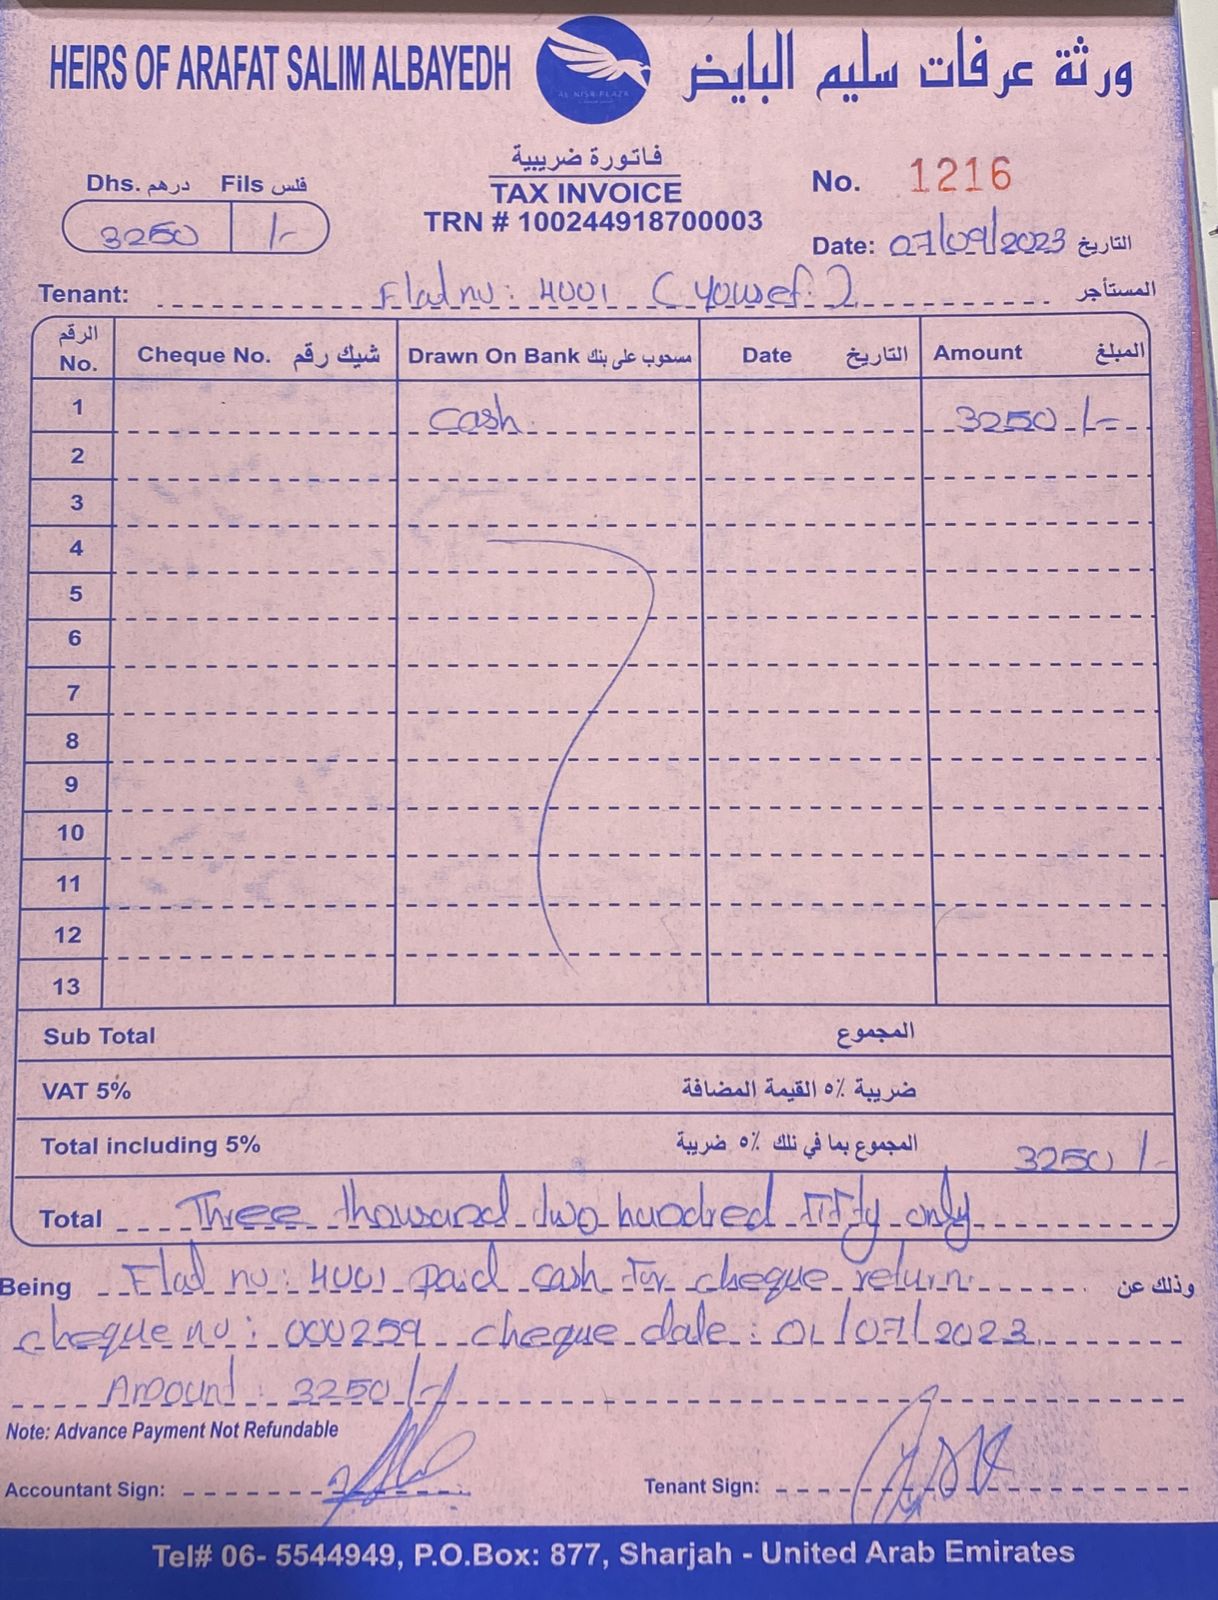 HEIRS OF ARAFAT SALIM ALBAYEDH ورثة عرفات سليم البايض
AL NISR PLAZA
فاتورة ضريبية
TAX INVOICE
TRN # 100244918700003
Dhs. درهم Fils فلس
3250 /-
No. 1216
Date: 07/09/2023 التاريخ
Tenant: Flat no: 4001 (Yousef) المستأجر
الرقم No. Cheque No. شيك رقم Drawn On Bank مسحوب على بنك Date التاريخ Amount المبلغ
1 cash 3250/-
2
3
4
5
6
7
8
9
10
11
12
13
Sub Total المجموع
VAT 5% ضريبة ٥٪ القيمة المضافة
Total including 5% المجموع بما في ذلك ٥٪ ضريبة 3250/-
Total Three thousand two hundred fifty only
Being Flat no: 4001 paid cash for cheque return. وذلك عن
cheque no: 000259 cheque date: 01/07/2023
Amount: 3250/-
Note: Advance Payment Not Refundable
Accountant Sign: Tenant Sign:
Tel# 06- 5544949, P.O.Box: 877, Sharjah - United Arab Emirates